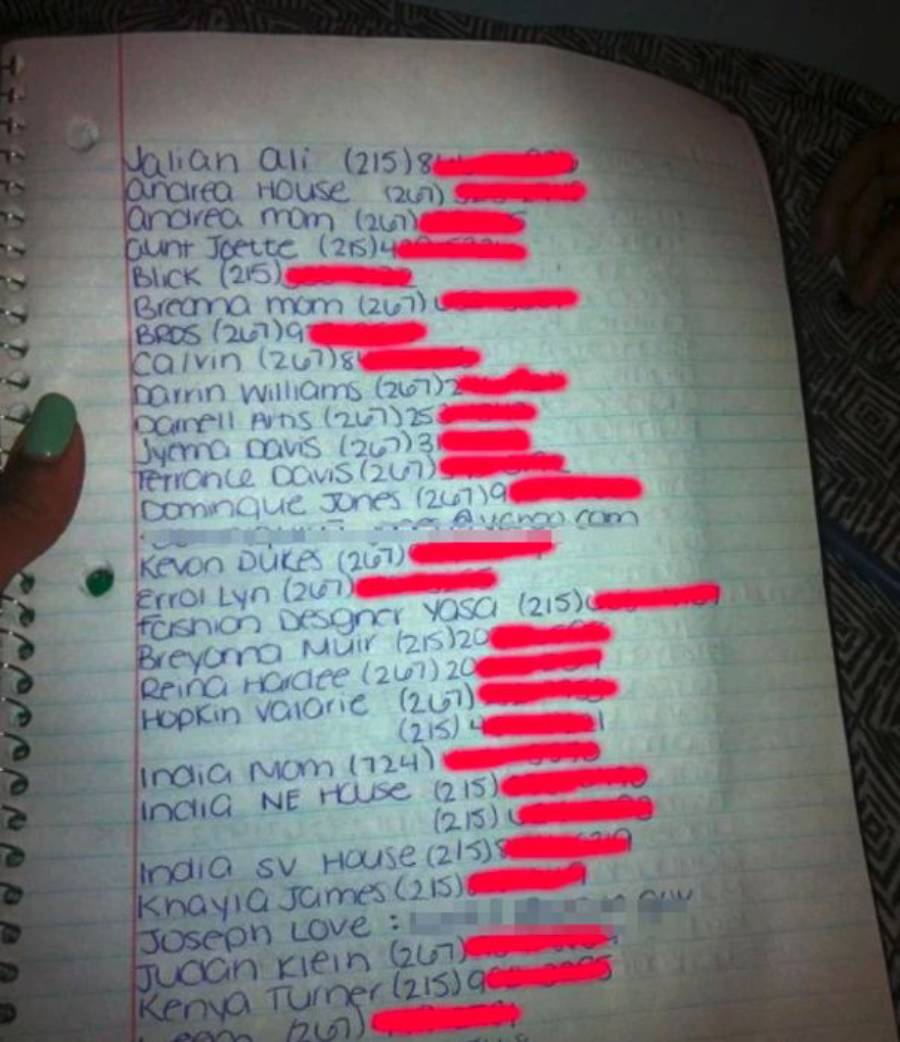 Jalian Ali (215)8
Andrea House (267)
Andrea mom (267)
Aunt Joette (215)4
Blick (215)
Breanna mom (267)
BROS (267)9
Calvin (267)8
Darrin Williams (267)2
Darnell Arms (267)25
Jyenna Davis (267)3
Terrance Davis (267)
Dominque Jones (267)9
@yahoo.com
Kevon Dukes (267)
Errol Lyn (267)
Fashion Designer Yasa (215)
Breyonna Muir (215)20
Reina Hardee (267)20
Hopkin Valarie (267)
(215) 4
India Mom (724)
India NE House (215)
(215)
India SV House (215)
Khayla James (215)
Joseph Love :
Judan Klein (267)
Kenya Turner (215)9
(267)